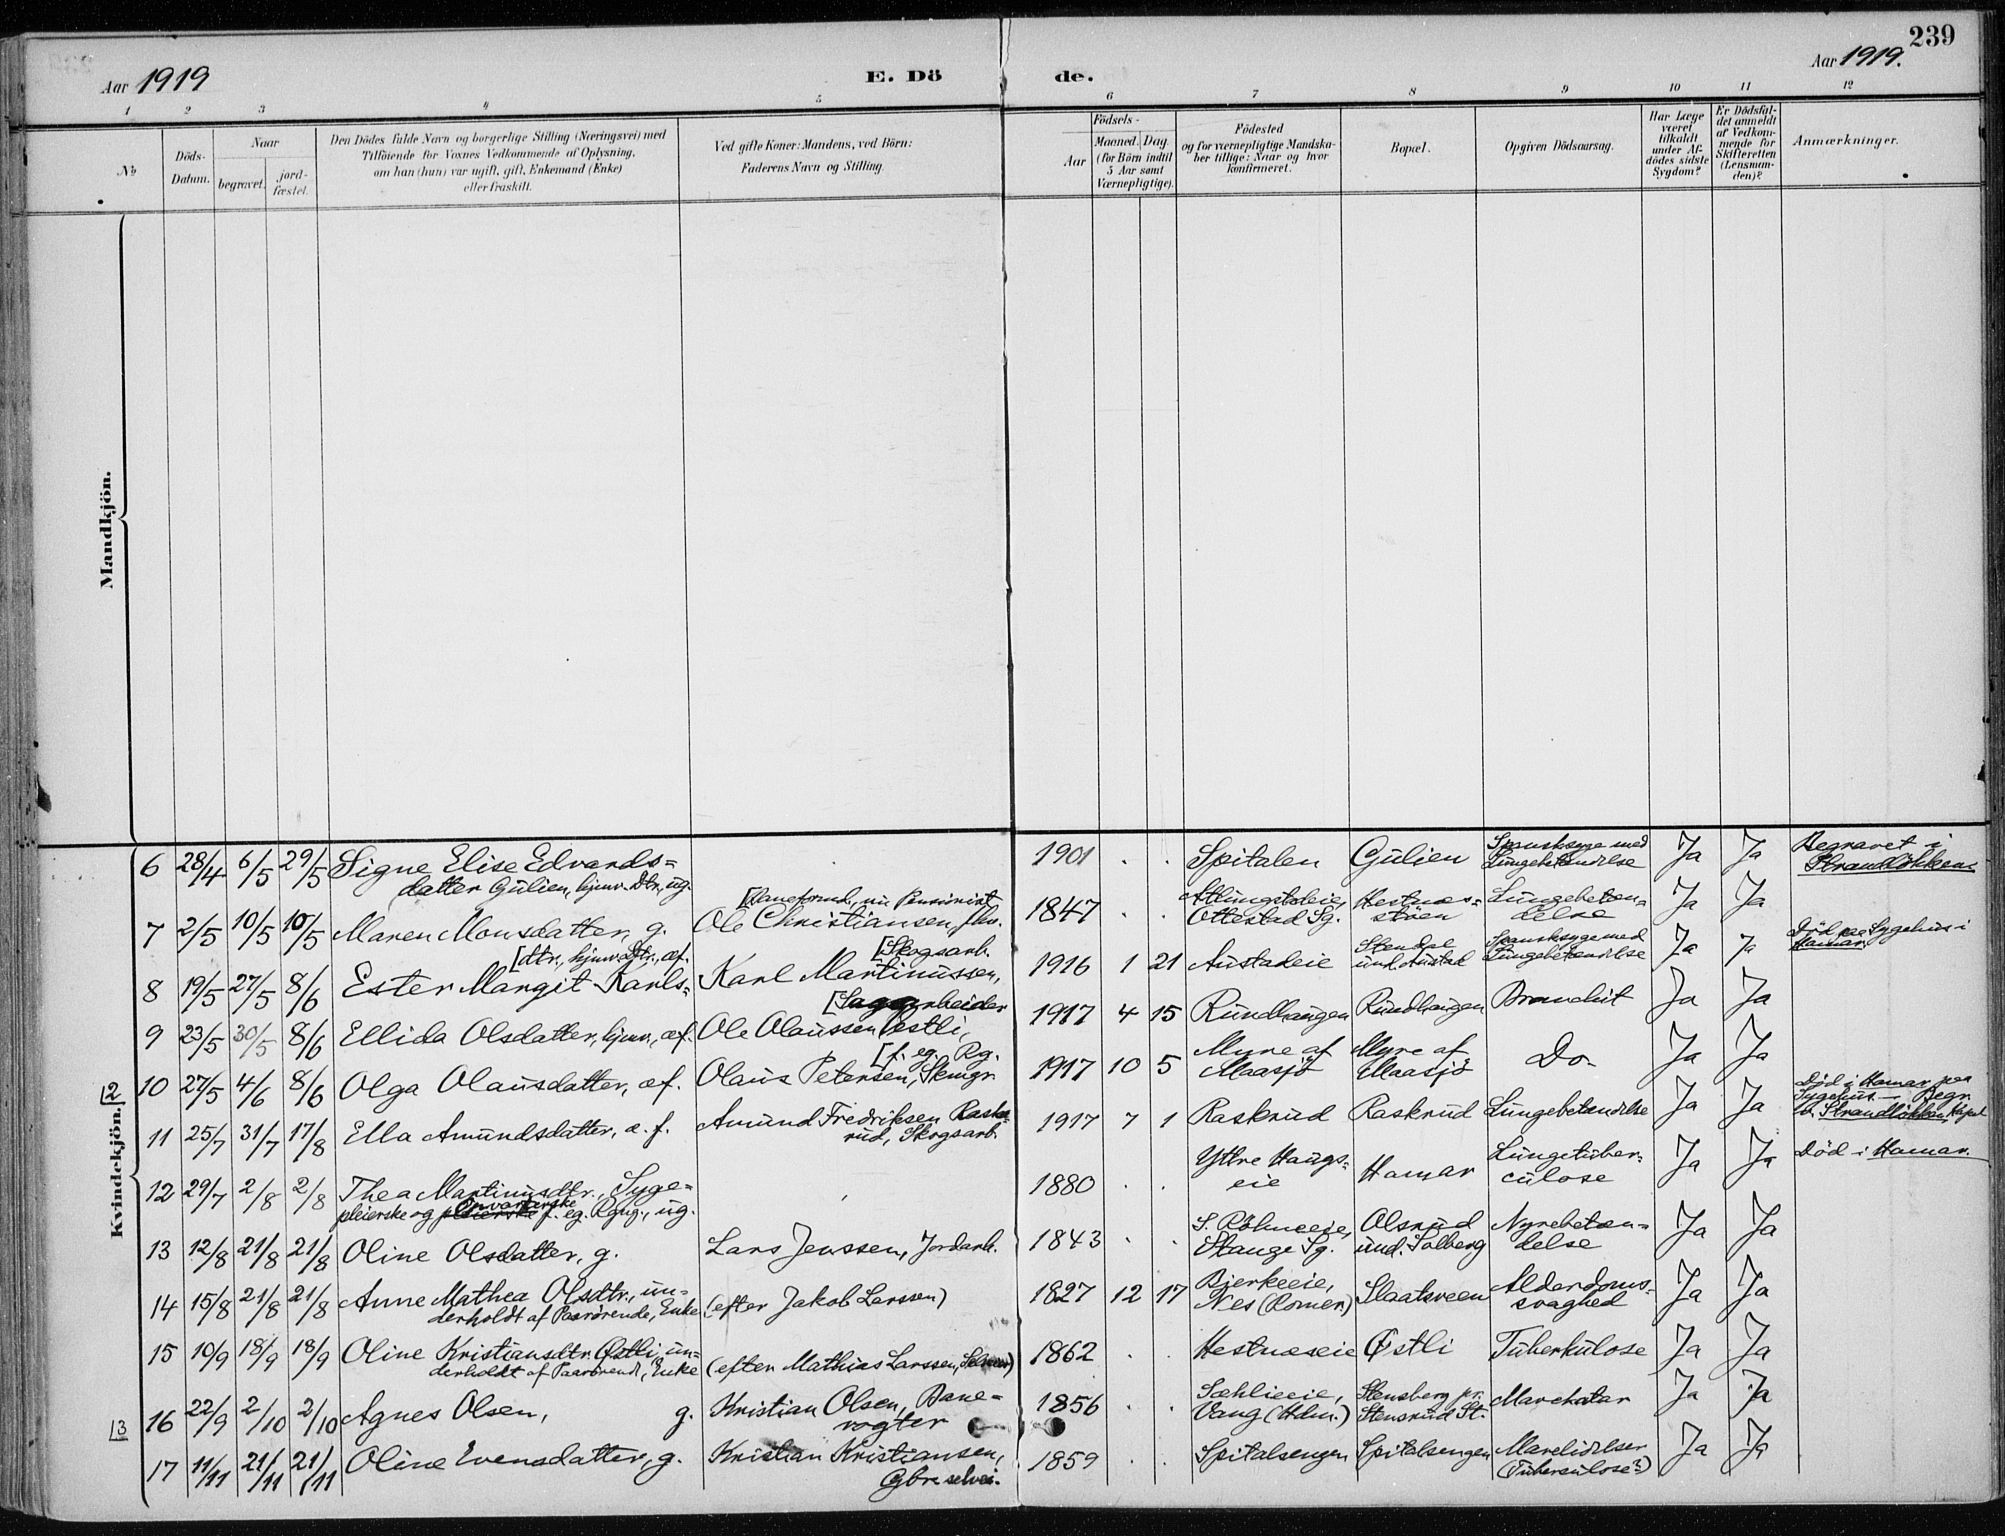 239
Aar 1919
E. Dö
de.
Aar 1919.
1 2 3 4 5 6 7 8 9 10 11 12
No
Döds-
Datum.
Naar
begravet.
jord-
fæstet.
Den Dödes fulde Navn og borgerlige Stilling (Næringsvei) med
Tilföiende for Voxnes Vedkommende af Oplysning,
om han (hun) var ugift, gift, Enkemand (Enke)
eller fraskilt.
Ved gifte Koner: Mandens, ved Börn:
Faderens Navn og Stilling.
Födsels-
Aar
Maaned. Dag
(for Börn indtil
5 Aar samt
Værnepligtige).
Födested
og for værnepligtige Mandska-
ber tillige: Naar og hvor
konfirmeret.
Bopæl.
Opgiven Dödsaarsag.
Har Læge
været
tilkaldt
under Af-
dödes sidste
Sygdom?
Er Dödsfal-
det anmeldt
af Vedkom-
mende for
Skifteretten
(Lensman-
den)?
Anmærkninger.
Mandkjön.
Kvindekjön.
6 28/4 6/5 29/5 Signe Elise Edvards=
datter Gulien, hjmv. Dtr., ug.
1901 . . Spitalen Gulien Spansksyge med
Lungebetændelse Ja Ja Begravet i
Strandløkken
7 2/5 10/5 10/5 Maren Monsdatter, g.
[Baneformd., nu Pensionist
Ole Christiansen,
1847 . . Ottestad Sg. Hestnæs=
støen Lungebetæn=
delse Ja Ja
8 19/5 27/5 8/6 Ester Margit Karls-
[dtr., hjmv. Dtr., æf.
[Skogsarb.
Karl Martinussen,
1916 1 21 Austadeie Stendse
und. Austad Spansksyge med
Lungebetændelse Ja Ja Död paa Sygehus i
Hamar.
9 23/5 30/5 8/6 Ellida Olsdatter, hjmv., æf.
[Sagarbeider
Ole Olaussen Østli,
1917 4 15 Rundhaugen Rundhaugen Bronchit Ja Ja
2
10 27/5 4/6 8/6 Olga Olausdatter, æf.
[f. eg. Rg.
Olaus Petersen,
1917 10 5 Myre af
Maasjø Myre af
Maasjø Do. Ja Ja
11 25/7 31/7 17/8 Ella Amundsdatter, æ. f.
Amund Fredriksen Rask=
rud, Skogsarb.
1917 7 1 Raskrud Raskrud Lungebetændelse Ja Ja Död i Hamar paa
Sygehus. — Begr.
v. Strandløkken Kapel
12 29/7 2/8 2/8 Thea Martinusdtr., Syge=
pleierske og f. eg. Rgng., ug.
1880 . . Yttre Haugs=
eie Hamar Lungetuber=
culose Ja Ja Död i Hamar.
13 12/8 21/8 21/8 Oline Olsdatter, g.
Lars Jenssen, Jordarb.
1843 . . Stange Sg. Olsrud
und. Solberg Nyrebetæn=
delse Ja Ja
14 15/8 21/8 21/8 Anne Mathea Olsdtr., un=
derholdt af Paarørende, Enke
(efter Jakob Larssen)
1827 12 17 Bjerkeeie,
Nes (Romer.) Slaatsveen Alderdoms-
svaghed Ja Ja
15 10/9 18/9 18/9 Oline Kristiansdtr. Østli, un=
derholdt af Paarørend., Enke
(efter Mathias Larssen,
1862 . . Hestnæseie Østli Tuberkulose Ja Ja
3
16 22/9 2/10 2/10 Agnes Olsen, g.
Kristian Olsen, Bane=
vogter
1856 . . Sæhlieeie,
Vang (Hdm.) Stensberg pr.
Stensrud St. Ja Ja
17 11/11 21/11 21/11 Oline Evensdatter, g.
Kristian Kristiansen,
Gbr. selvei.
1859 . . Spitalsengen Spitalsengen Mavelidelser
(Tuberculose?) Ja Ja